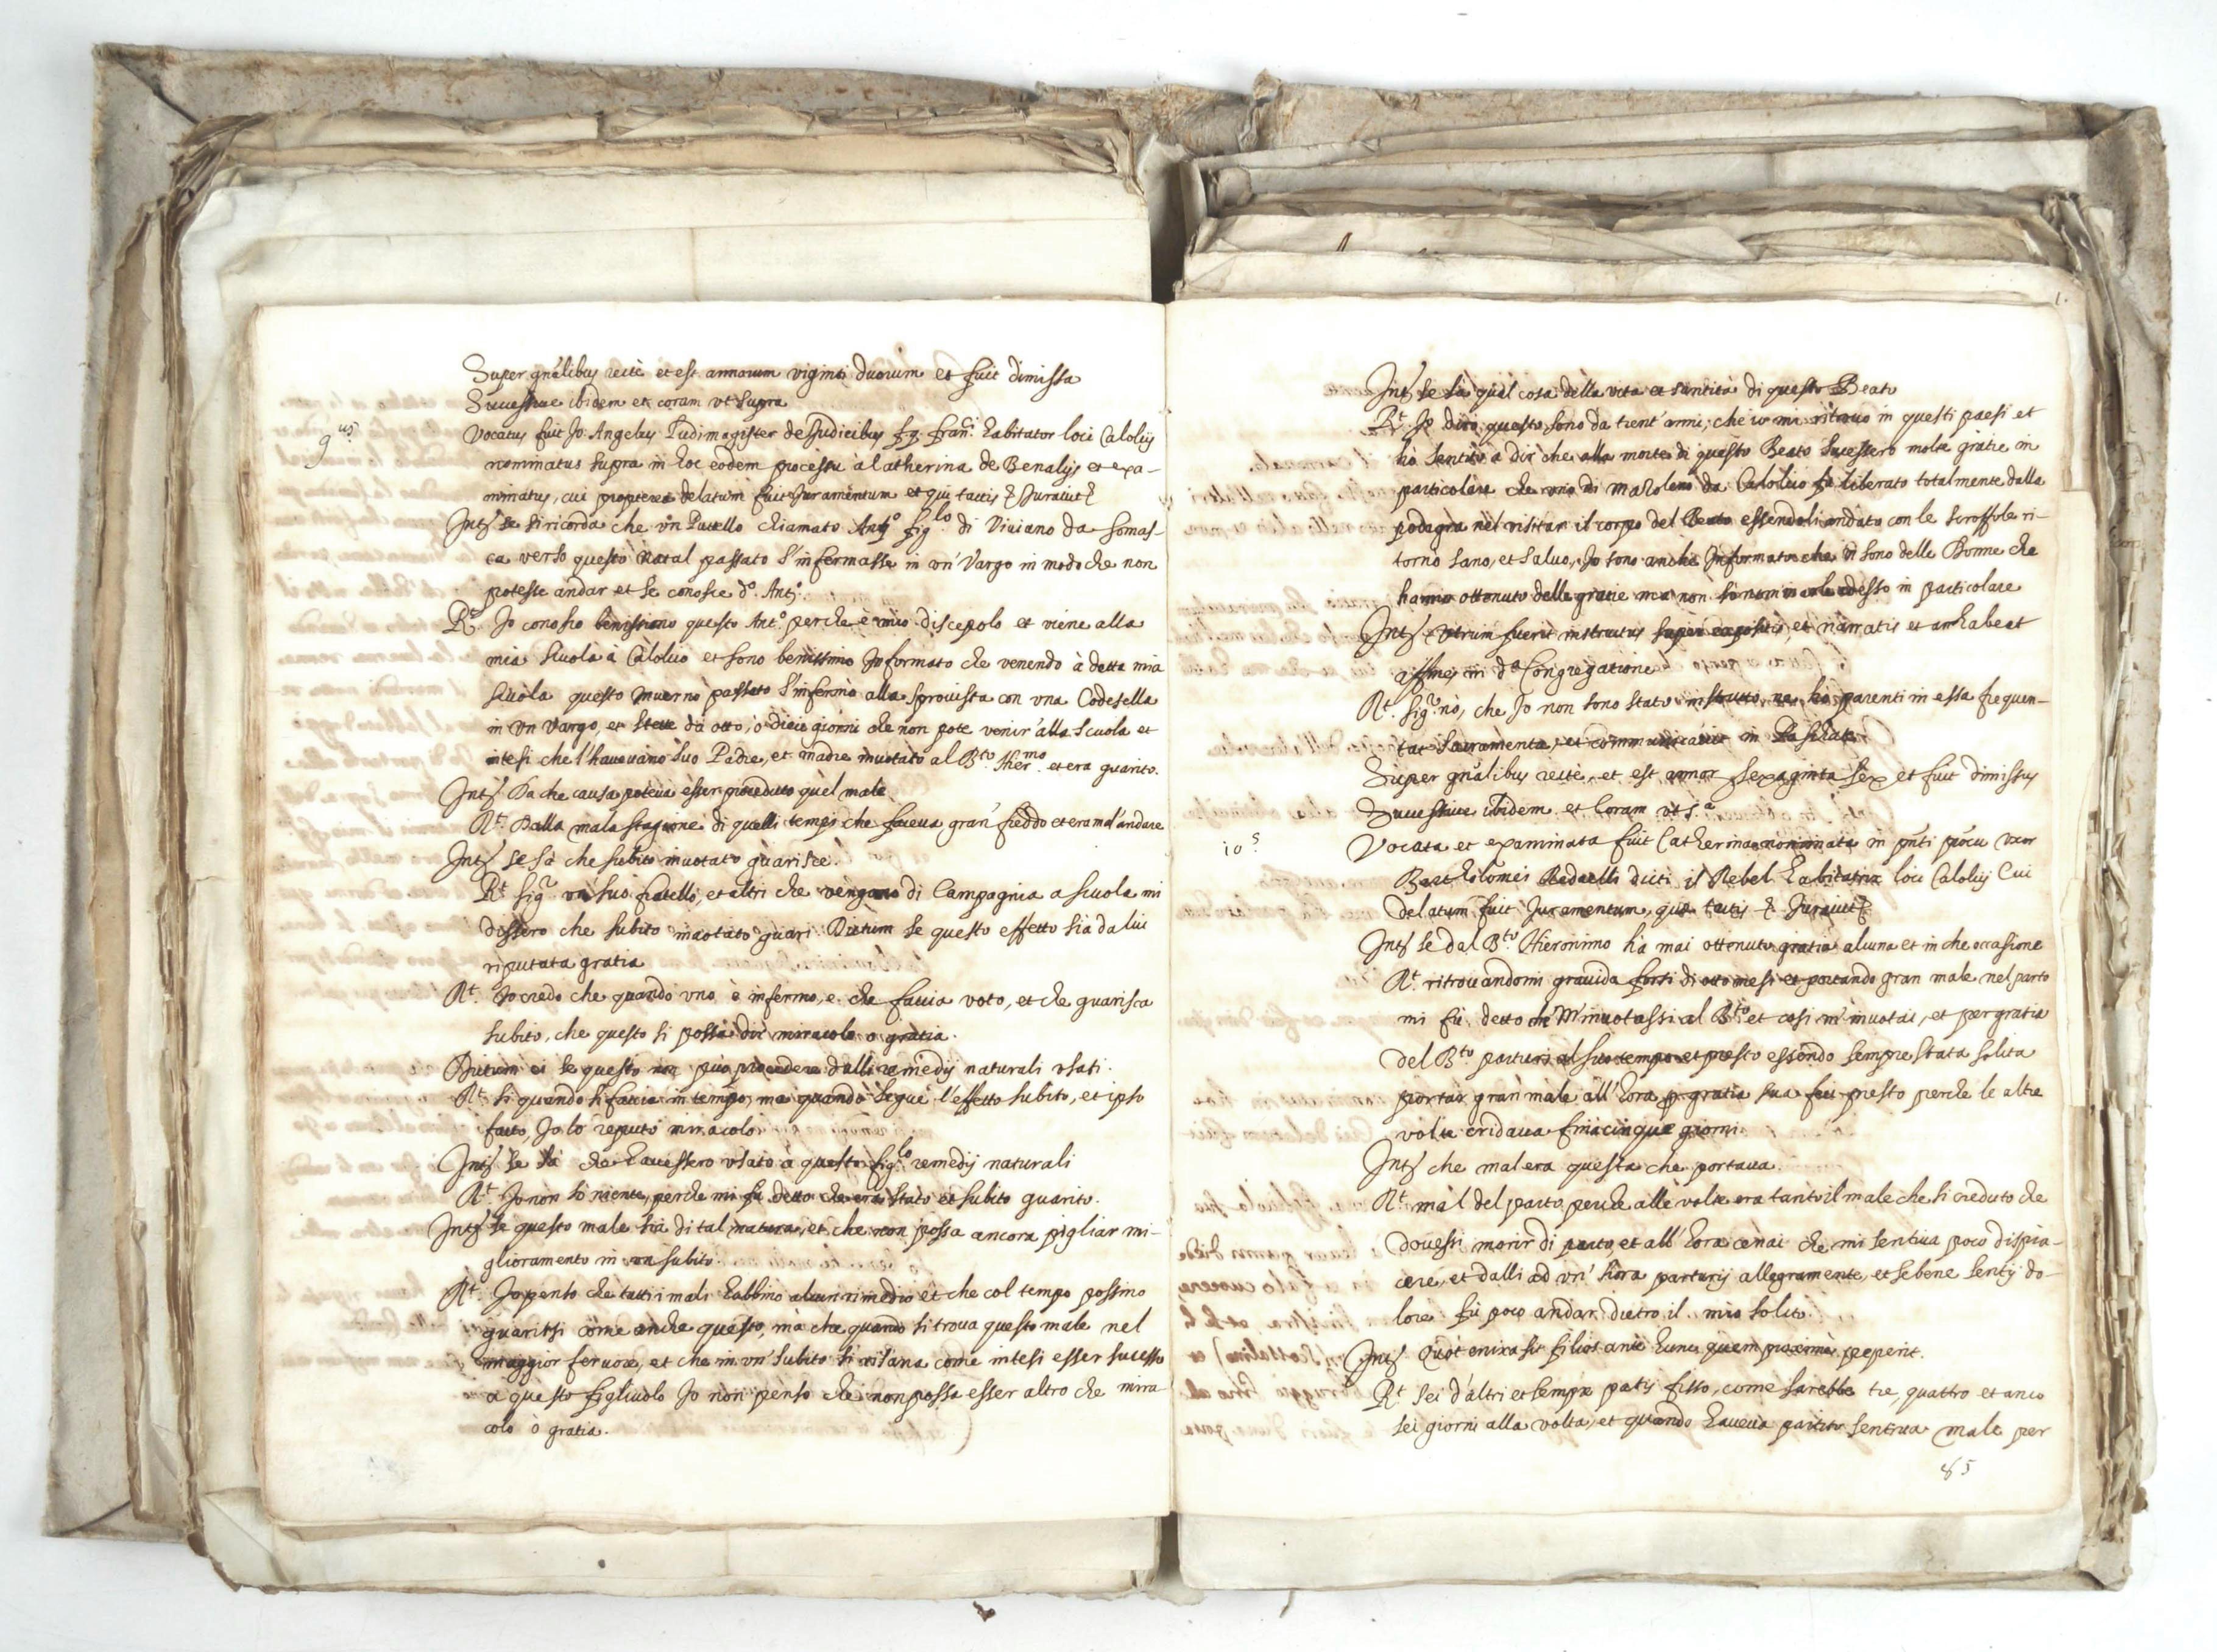 Super gnãlibus recte et est annorum viginti duorum et fuit dimissa
Successiue ibidem et coram vt supra
9.us
Vocatus fuit Jo: Angelus Ludimagister de Judicibus f.q. Fran.ci habitator loci Calolij
nominatus supra in hoc eodem processu à Catherina de Benalijs et exa-
minatus, cui propterea delatum fuit Juramentum et qui tactis & Jurauit &
Int.s se si ricorda che vn Putello chiamato Ant.o fig.lo di Viuiano da Somas-
ca verso questo Natal passato s'infermasse in vn' Vargo in modo che non
potesse andar et se conosce d.o Ant.o
R.t Jo conosco benissimo questo Ant.o perche è mio discepolo et viene alla
mia scuola à Calolcio et sono benissimo Informato che venendo à detta mia
scuola questo Inuerno passato s'infermò alla sprouista con vna Codesella
in vn Vargo, et stette da otto, o dieci giorni che non pote venir' alla scuola et
intesi che l'haueuano suo Padre, et madre inuotato al B.to Hier.mo et era guarito.
Int.s Da che causa poteua esser proceduto quel male
R.t Dalla mala stagione di quelli tempi che faceua gran' freddo et era mal' andare
Int.s se sà che subito inuotato guarisce.
R.t Sig.r vn suo fratello, et altri che vengano di Campagnia a scuola mi
dissero che subito inuotato guarì Dictum se questo effetto sia da lui
riputata gratia
R.t Jo credo che quando vno è infermo, e che faccia voto, et che guarisca
subito, che questo si possa dir miracolo o gratia.
Dictum ei se questo non può procedere dalli remedij naturali vsati.
R.t si quando si faccia in tempo, ma quando segue l'effetto subito, et ipso
facto, Jo lo reputo miracolo.
Int.s se sà che hauessero vsato à questo fig.lo remedij naturali
R.t Jo non sò niente, perche mi fu detto che era stato et subito guarito.
Int.s se questo male sia di tal natura, et che non possa ancora pigliar mi-
glioramento in vn subito.
R.t Jo penso che tutti i mali habbino alcun rimedio et che col tempo possino
guarirsi come anche questo, mà che quando si troua questo male nel
maggior feruore, et che in vn' subito si risana come intesi esser sucesso
a questo figliuolo Jo non penso che non possa esser altro che mira
colo ò gratia.
Int.s se sà qual cosa della vita et santità di questo Beato
R.t Jo dico questo sono da trent' anni, che io mi ritrouo in questi paesi et
hò sentito a dir che alla morte di questo Beato sucessero molte gratie in
particolare che vno di Mazoleno da Calolcio fu liberato totalmente dalla
podagra nel visitar il corpo del Beato essendoli andato con le scroffole ri-
tornò sano, et saluo, Jo sono anche Informato che vi sono delle Donne che
hanno ottenuto delle gratie ma non sò nominarle adesso in particolare
Int.s Vtrum fuerit instructus super expositis, et narratis et an habeat
affines in d.a Congregatione
R.t Sig.r nò, che Jo non sono stato instrutto, ne hò parenti in essa frequen-
tat Sacramenta, et communicauit in Paschate
Super gnãlibus recte, et est annor. sexaginta sex et fuit dimissus
Successiue ibidem et Coram vt s.a
10.s
Vocata et examinata fuit Catherina nominata in pnti pñcu vxor
Bartholomei Redaelli dicti il Rebel habitatrix loci Calolij Cui
delatum fuit Juramentum, quæ tactis & Jurauit &
Int.s se dal B.to Hieronimo hà mai ottenuto gratia alcuna et in che occasione
R.t ritrouandomi grauida forsi di otto mesi et portando gran male nel parto
mi fù detto ch' m'inuotassi al B.to et cosi m'inuotai, et per gratia
del B.to parturi al suo tempo et presto essendo sempre stata solita
portar gran male all' hora p gratia sua feci presto perche le altre
volte cridaua fin à cinque giorni
Int.s che mal era questa che portaua
R.t mal del parto perche alle volte era tanto il male che si creduto che
douessi morir di parto, et all' hora cenai che mi sentiua poco dispia-
cere, et dalli ad vn' hora parturij allegramente, et sebene sentij do-
lore fù poco andar dietro il mio solito.
Int.s Quot enixa sit filios ante hunc quem proxime peperit.
R.t Sei d'altri et sempre patij fisso, come sarebbe tre, quattro et anco
sei giorni alla volta, et quando haueua partito sentiua male per
85